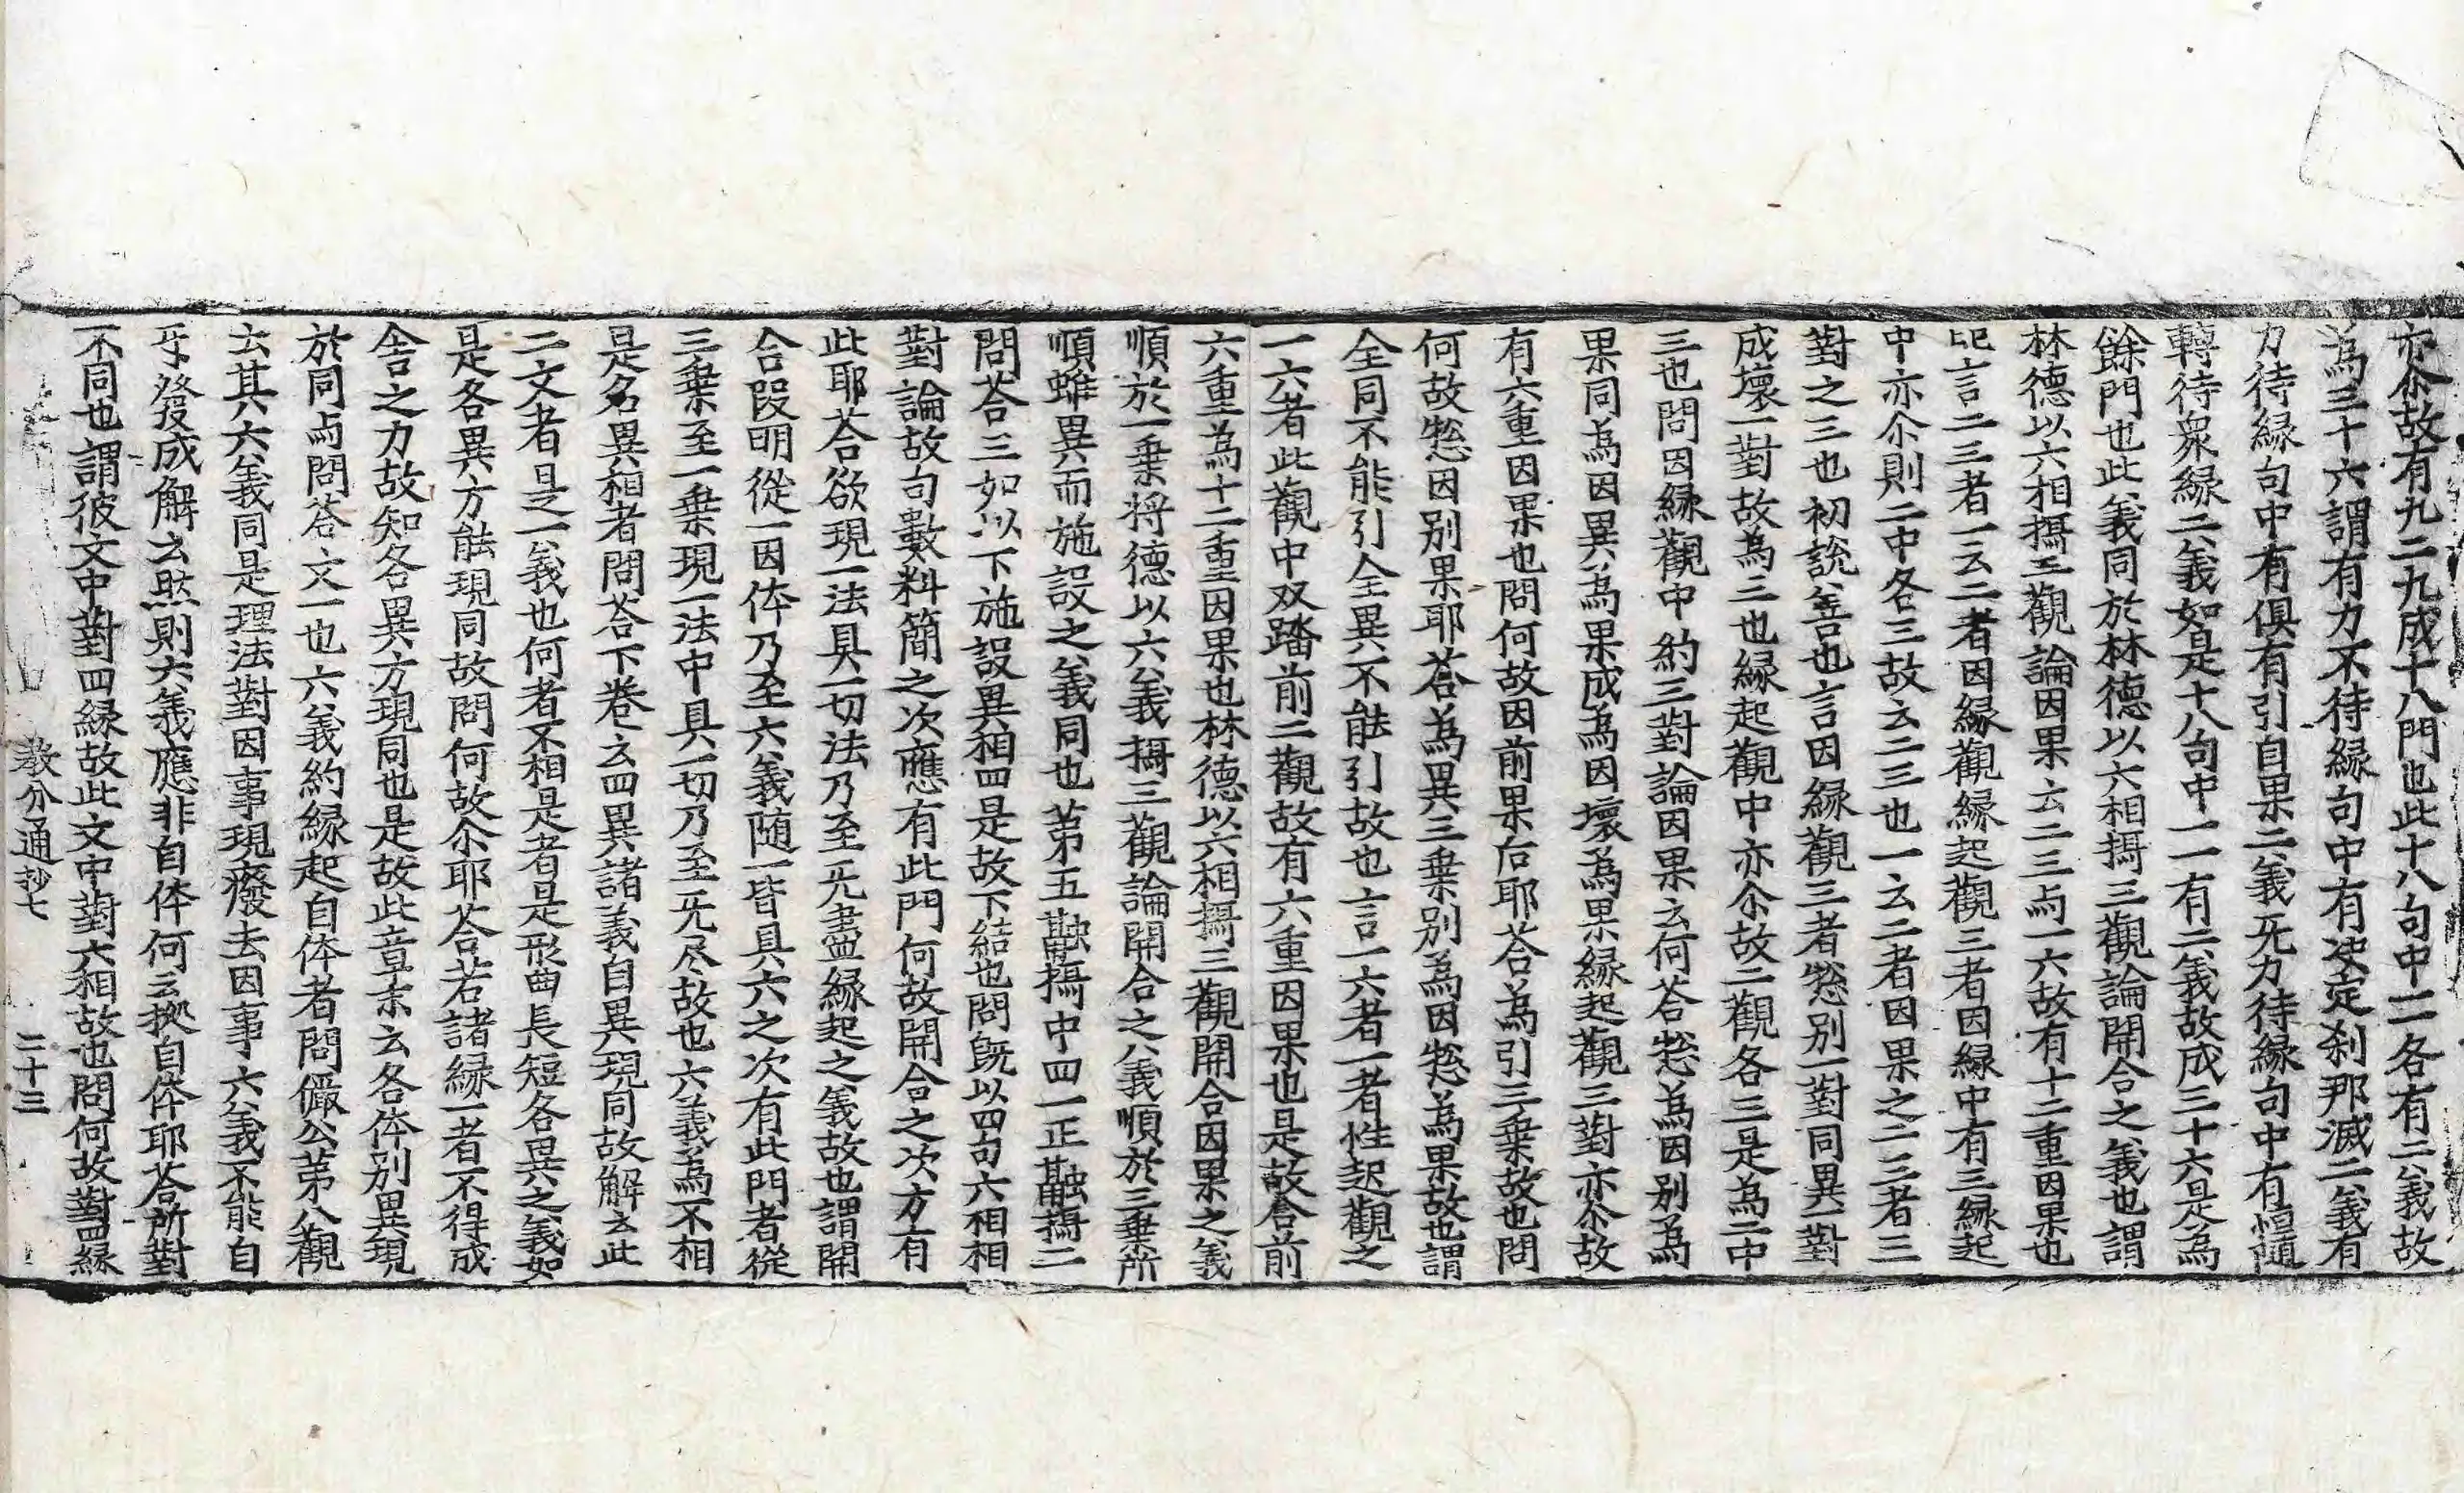 亦尒故有九二九成十八門也此十八句中一一各有二義故
為三十六謂有力不待緣句中有决定刹那滅二義有
力待緣句中有俱有引自果二義无力待緣句中有恒隨
轉待衆緣二義如是十八句中一一有二義故成三十六是為
餘門也此義同於林德以六相攝三觀論開合之義也謂
林德以六相攝三觀論因果云二三而一六故有十二重因果也
言二三者一云二者因緣觀緣起觀三者因緣中有三緣起
中亦尒則二中各三故云二三也一云二者因果之二三者三
對之三也初說善也言因緣觀三者惣別一對同異一對
成壞一對故為三也緣起觀中亦尒故二觀各三是為二中
三也問因緣觀中約三對論因果云何荅惣為因別為
果同為因異為果成為因壞為果緣起觀三對亦尒故
有六重因果也問何故因前果后耶荅為引三乗故也問
何故惣因別果耶荅為異三乗別為因惣為果故也謂
全同不能引全異不能引故也言一六者一者性起觀之
一六者此觀中双踏前二觀故有六重因果也是故合前
六重為十二重因果也林德以六相攝三觀開合因果之義
順於一乗將德以六義攝三觀論開合之義順於三乗所
順雖異而施設之義同也第五融攝中四一正融攝二
問荅三如以下施設異相四是故下結也問旣以四句六相相
對論故句數料簡之次應有此門何故開合之次方有
此耶荅欲現一法具一切法乃至无盡緣起之義故也謂開
合段明從一因体乃至六義随一皆具六之次有此門者從
三乗至一乗現一法中具一切乃至无尽故也六義為不相
是名異相者問荅下卷云四異諸義自異現同故解云此
二文者是一義也何者不相是者是形曲長短各異之義如
是各異方能現同故問何故尒耶荅若諸緣一者不得成
舍之力故知各異方現同也是故此章末云各体別異現
於同而問荅文一也六義約緣起自体者問儼公第八觀
云其六六義同是理法對因事現癈去因事六義不能自
發成解云然則六義應非自体何云拠自体耶荅所對
不同也謂彼文中對四緣故此文中對六相故也問何故對四緣
教分通抄七 二十三